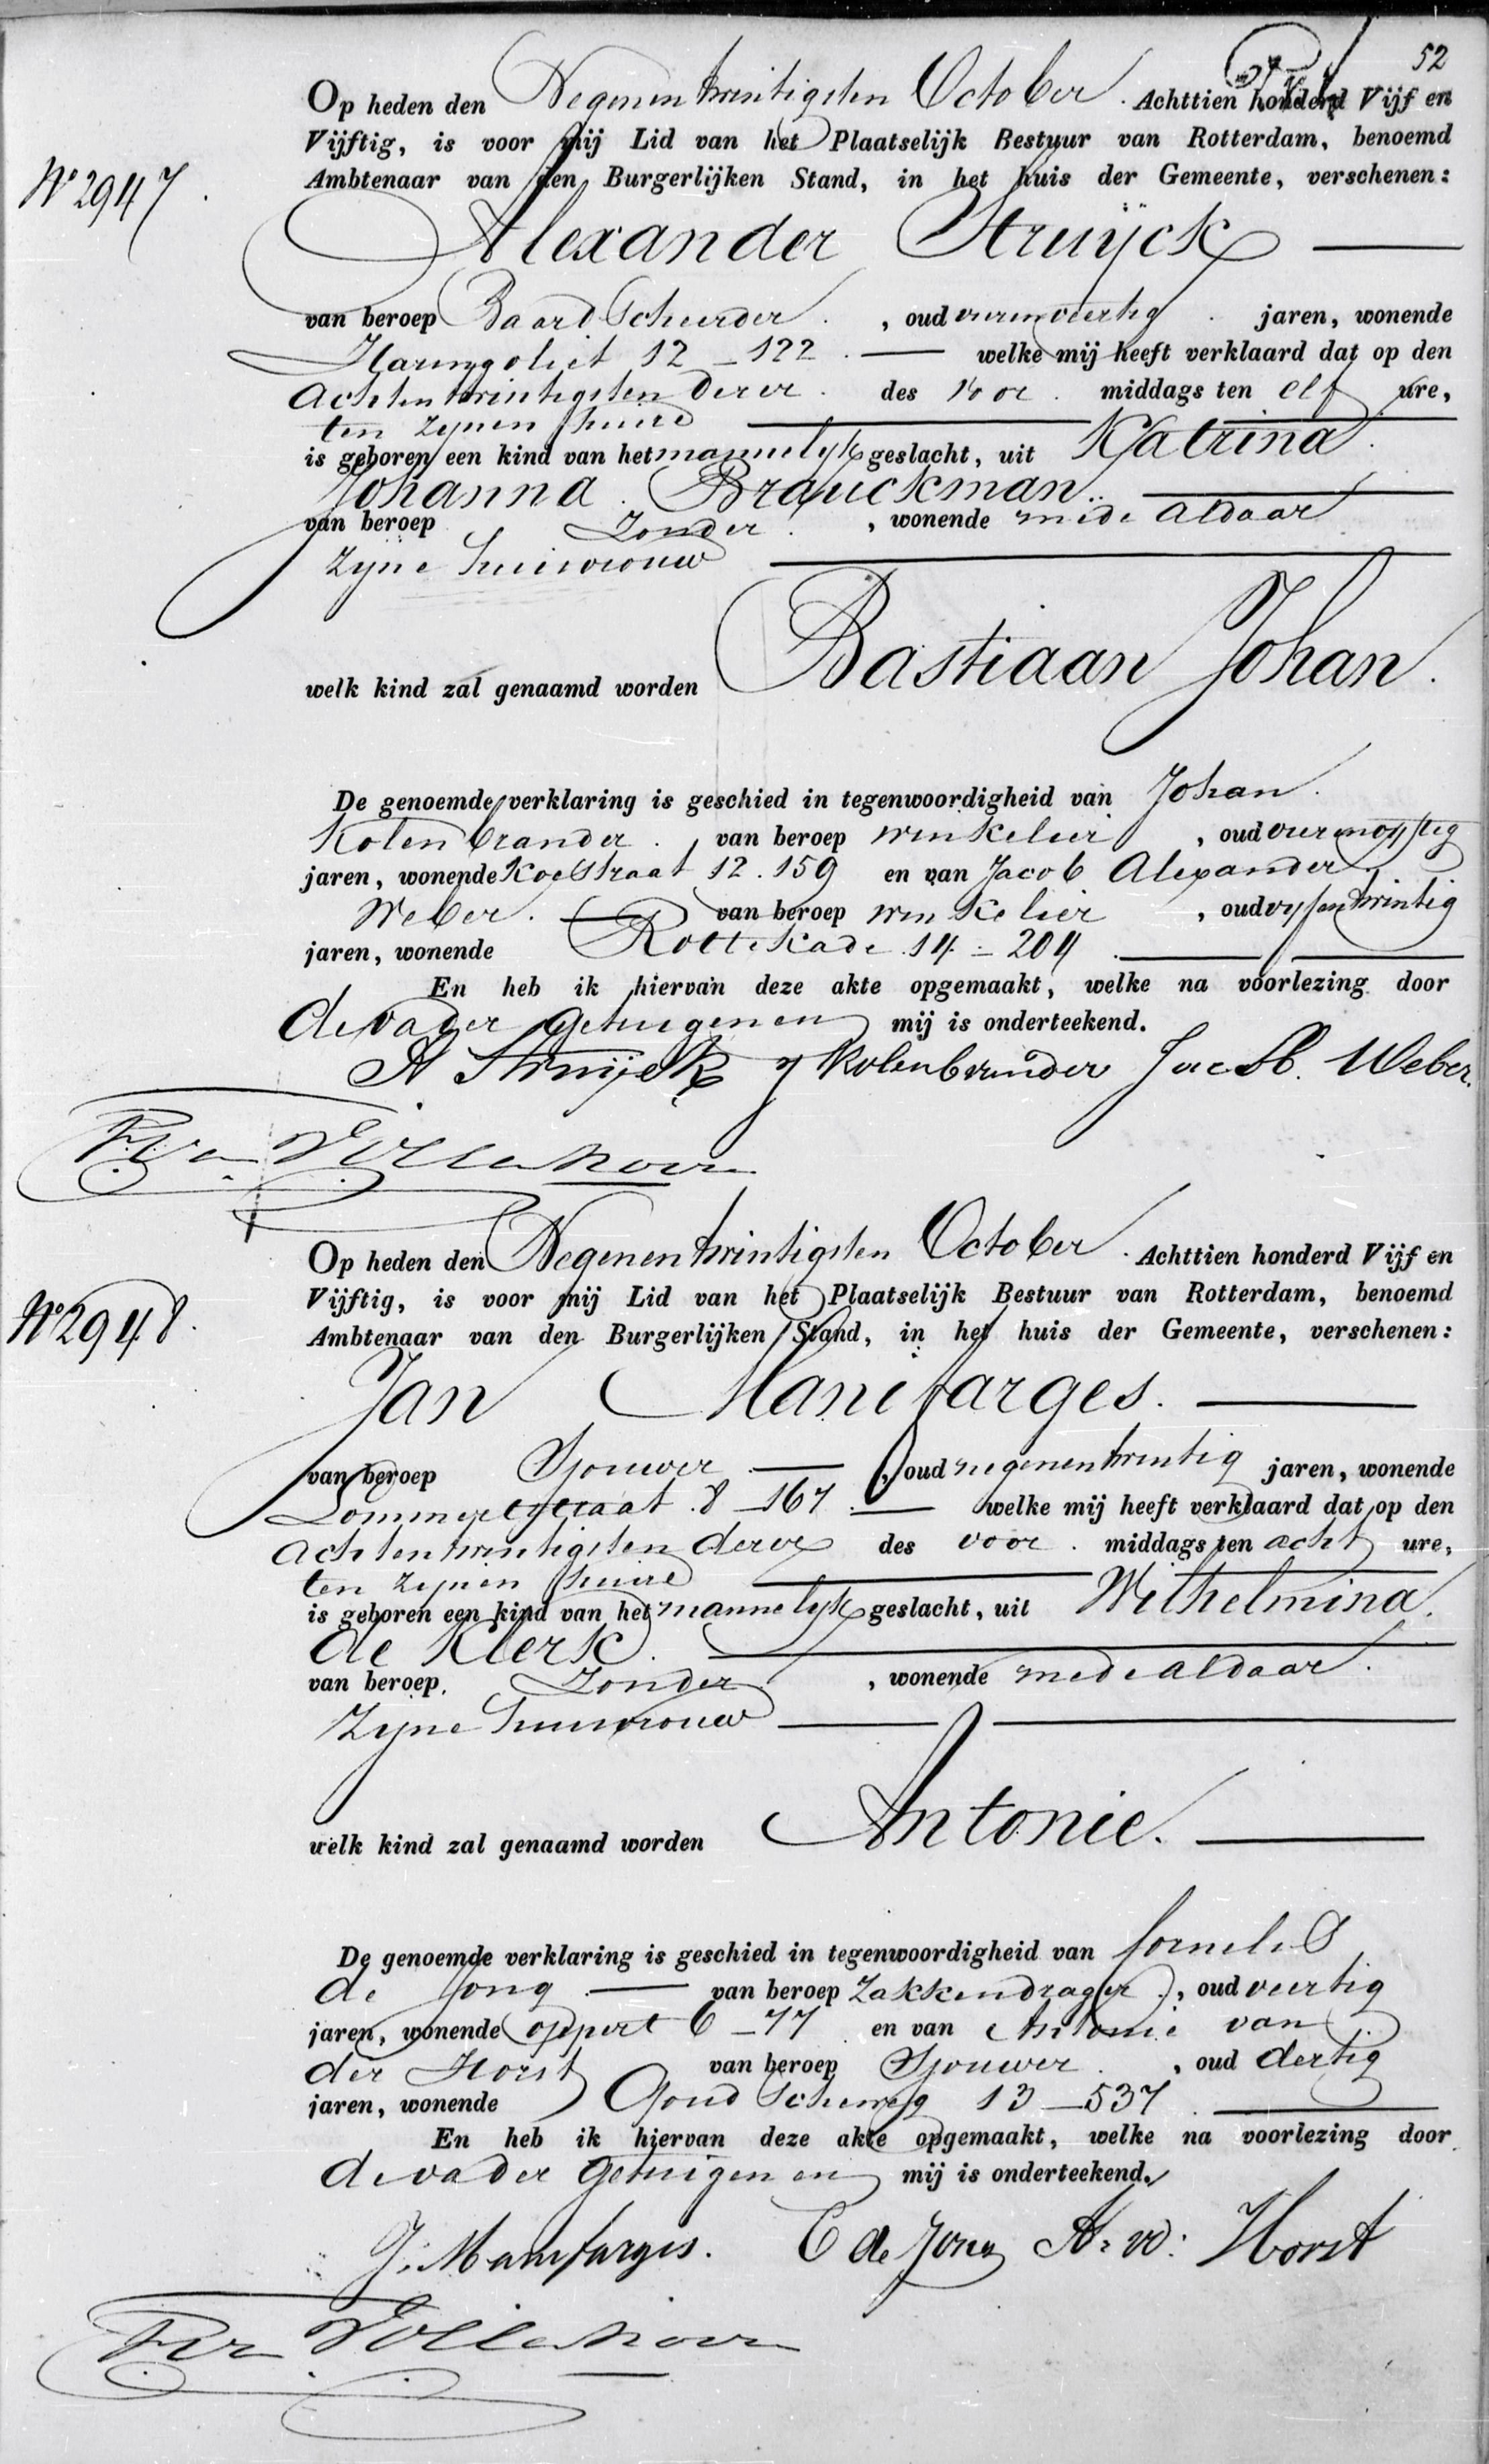 52
Op heden den Negenentwintigsten October . Achttien honderd Vijf en
Vijftig, is voor mij Lid van het Plaatselijk Bestuur van Rotterdam, benoemd
Ambtenaar van den Burgerlijken Stand, in het huis der Gemeente, verschenen:
No 2947.
Alexander Struijck
van beroep Baardscheerder . , oud vierenveertig . jaren, wonende
Haringvliet 12 - 122 . welke mij heeft verklaard dat op den
Achtentwintigsten dezer . des voor . middags ten elf ure,
ten zijnen huize
is geboren een kind van het mannelijk geslacht, uit Katrina .
Johanna . Brauckman .
van beroep Zonder . , wonende mede Aldaar
Zijne huisvrouw
welk kind zal genaamd worden Bastiaan Johan .
De genoemde verklaring is geschied in tegenwoordigheid van Johan .
Kolenbrander . van beroep winkelier , oud vierenvijftig
jaren, wonende Koestraat 12 . 159 en van Jacob Alexander
Weber . van beroep winkelier , oud vijfentwintig
jaren, wonende Rottekade . 14 - 204 .
En heb ik hiervan deze akte opgemaakt, welke na voorlezing door
de vader getuigen en mij is onderteekend.
A Struijck J Kolenbrander Jac Ab. Weber.
Op heden den Negenentwintigsten October . Achttien honderd Vijf en
Vijftig, is voor mij Lid van het Plaatselijk Bestuur van Rotterdam, benoemd
Ambtenaar van den Burgerlijken Stand, in het huis der Gemeente, verschenen:
No 2948.
Jan Manifarges .
van beroep Sjouwer , oud negenentwintig jaren, wonende
Lommertstraat . 8 - 167 . welke mij heeft verklaard dat op den
Achtentwintigsten dezer des voor . middags ten acht ure,
ten zijnen huize
is geboren een kind van het mannelijk geslacht, uit Wilhelmina .
de Klerk .
van beroep Zonder . , wonende mede Aldaar .
Zijne huisvrouw
welk kind zal genaamd worden Antonie .
De genoemde verklaring is geschied in tegenwoordigheid van Cornelis
de Jong van beroep Zakkendrager . , oud veertig
jaren, wonende Oppert 6 - 77 en van Antonie van
der Horst van beroep Sjouwer . , oud dertig
jaren, wonende Goudscheweg 13 - 537 .
En heb ik hiervan deze akte opgemaakt, welke na voorlezing door
de vader getuigen en mij is onderteekend.
J: Manifarges. C de Jong A: vd: Horst